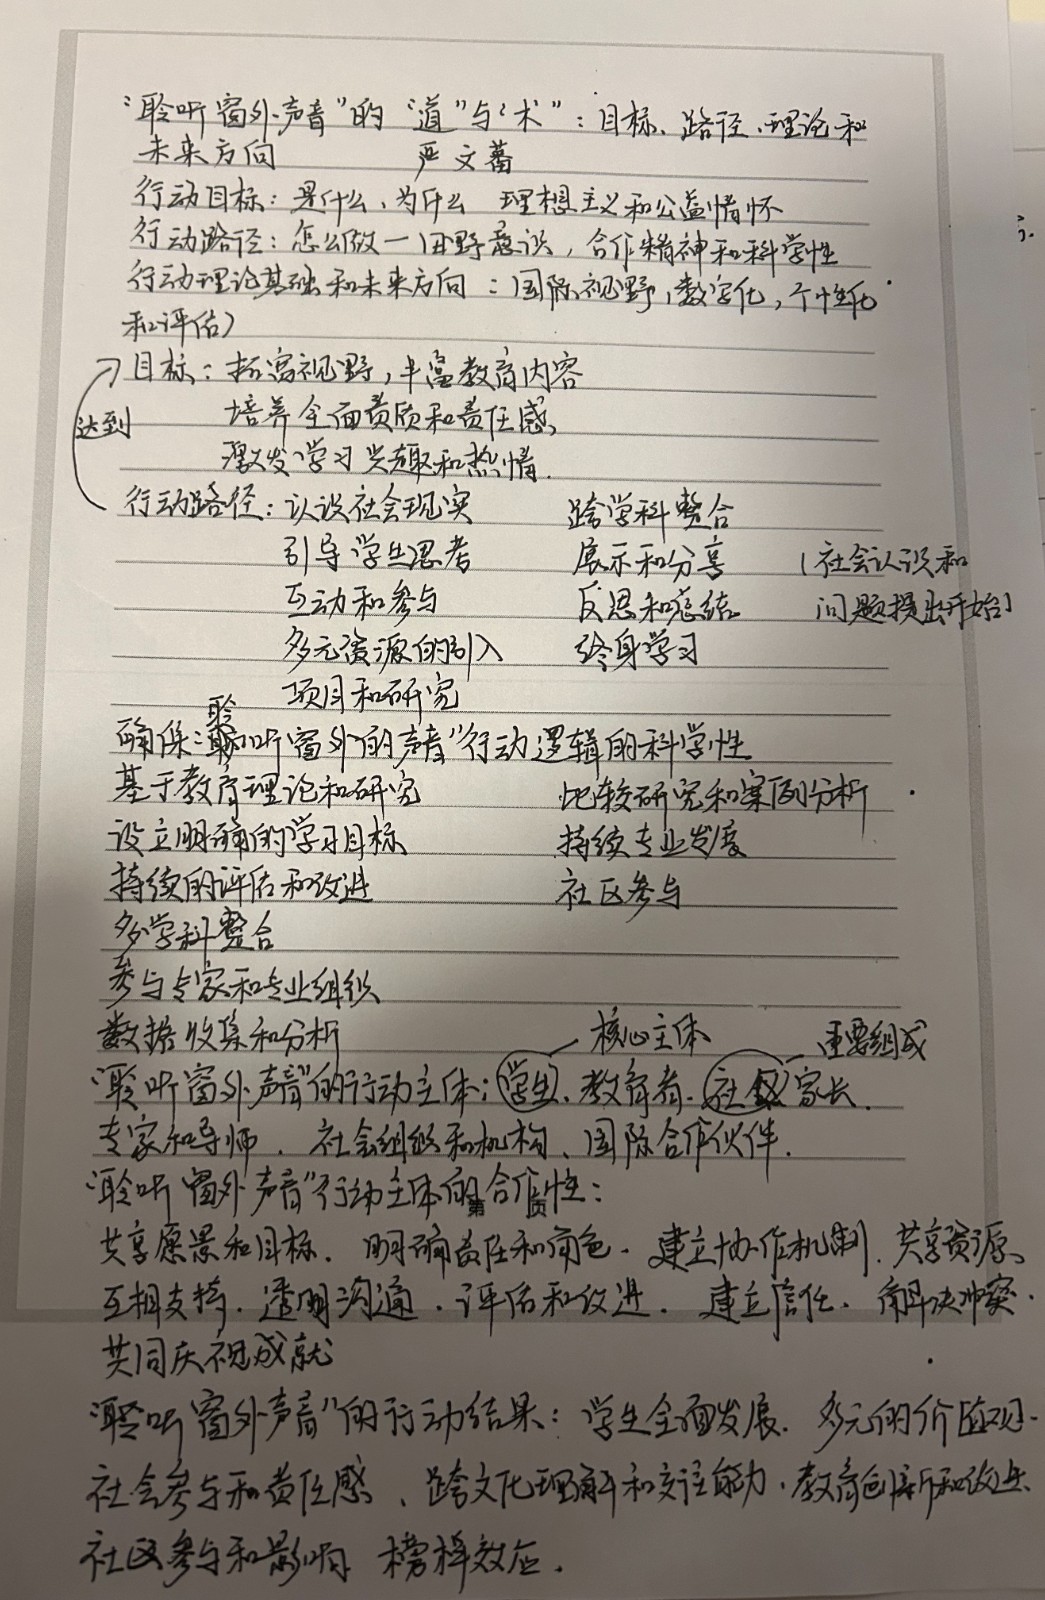 “聆听窗外声音”的“道”与“术”：目标、路径、理论和
未来方向 严文蕃
行动目标：是什么、为什么 理想主义和公益情怀
行动路径：怎么做—田野意识，合作精神和科学性
行动理论基础和未来方向：国际视野，数字化，个性化
和评估）
目标：拓宽视野，丰富教育内容
达到 培养全面素质和责任感，
激发学习兴趣和热情.
行动路径：认识社会现实 跨学科整合
引导学生思考 展示和分享 （社会认识和
互动和参与 反思和总结 问题提出开始）
多元资源的引入 终身学习
项目和研究
聆
确保“听窗外的声音”行动逻辑的科学性
基于教育理论和研究 比较研究和案例分析
设立明确的学习目标 持续专业发展
持续的评估和改进 社区参与
多学科整合
参与专家和专业组织
数据收集和分析 核心主体 重要组成
“聆听窗外声音”的行动主体：学生、教育者、社区 家长、
专家和导师、社会组织和机构、国际合作伙伴.
“聆听窗外声音”行动主体的合作性：
共享愿景和目标、明确责任和角色、建立协作机制、共享资源、
互相支持、透明沟通、评估和改进、建立信任、解决冲突、
共同庆祝成就
“聆听窗外声音”的行动结果：学生全面发展、多元的价值观、
社会参与和责任感、跨文化理解和交往能力、教育创新和改进、
社区参与和影响 榜样效应.